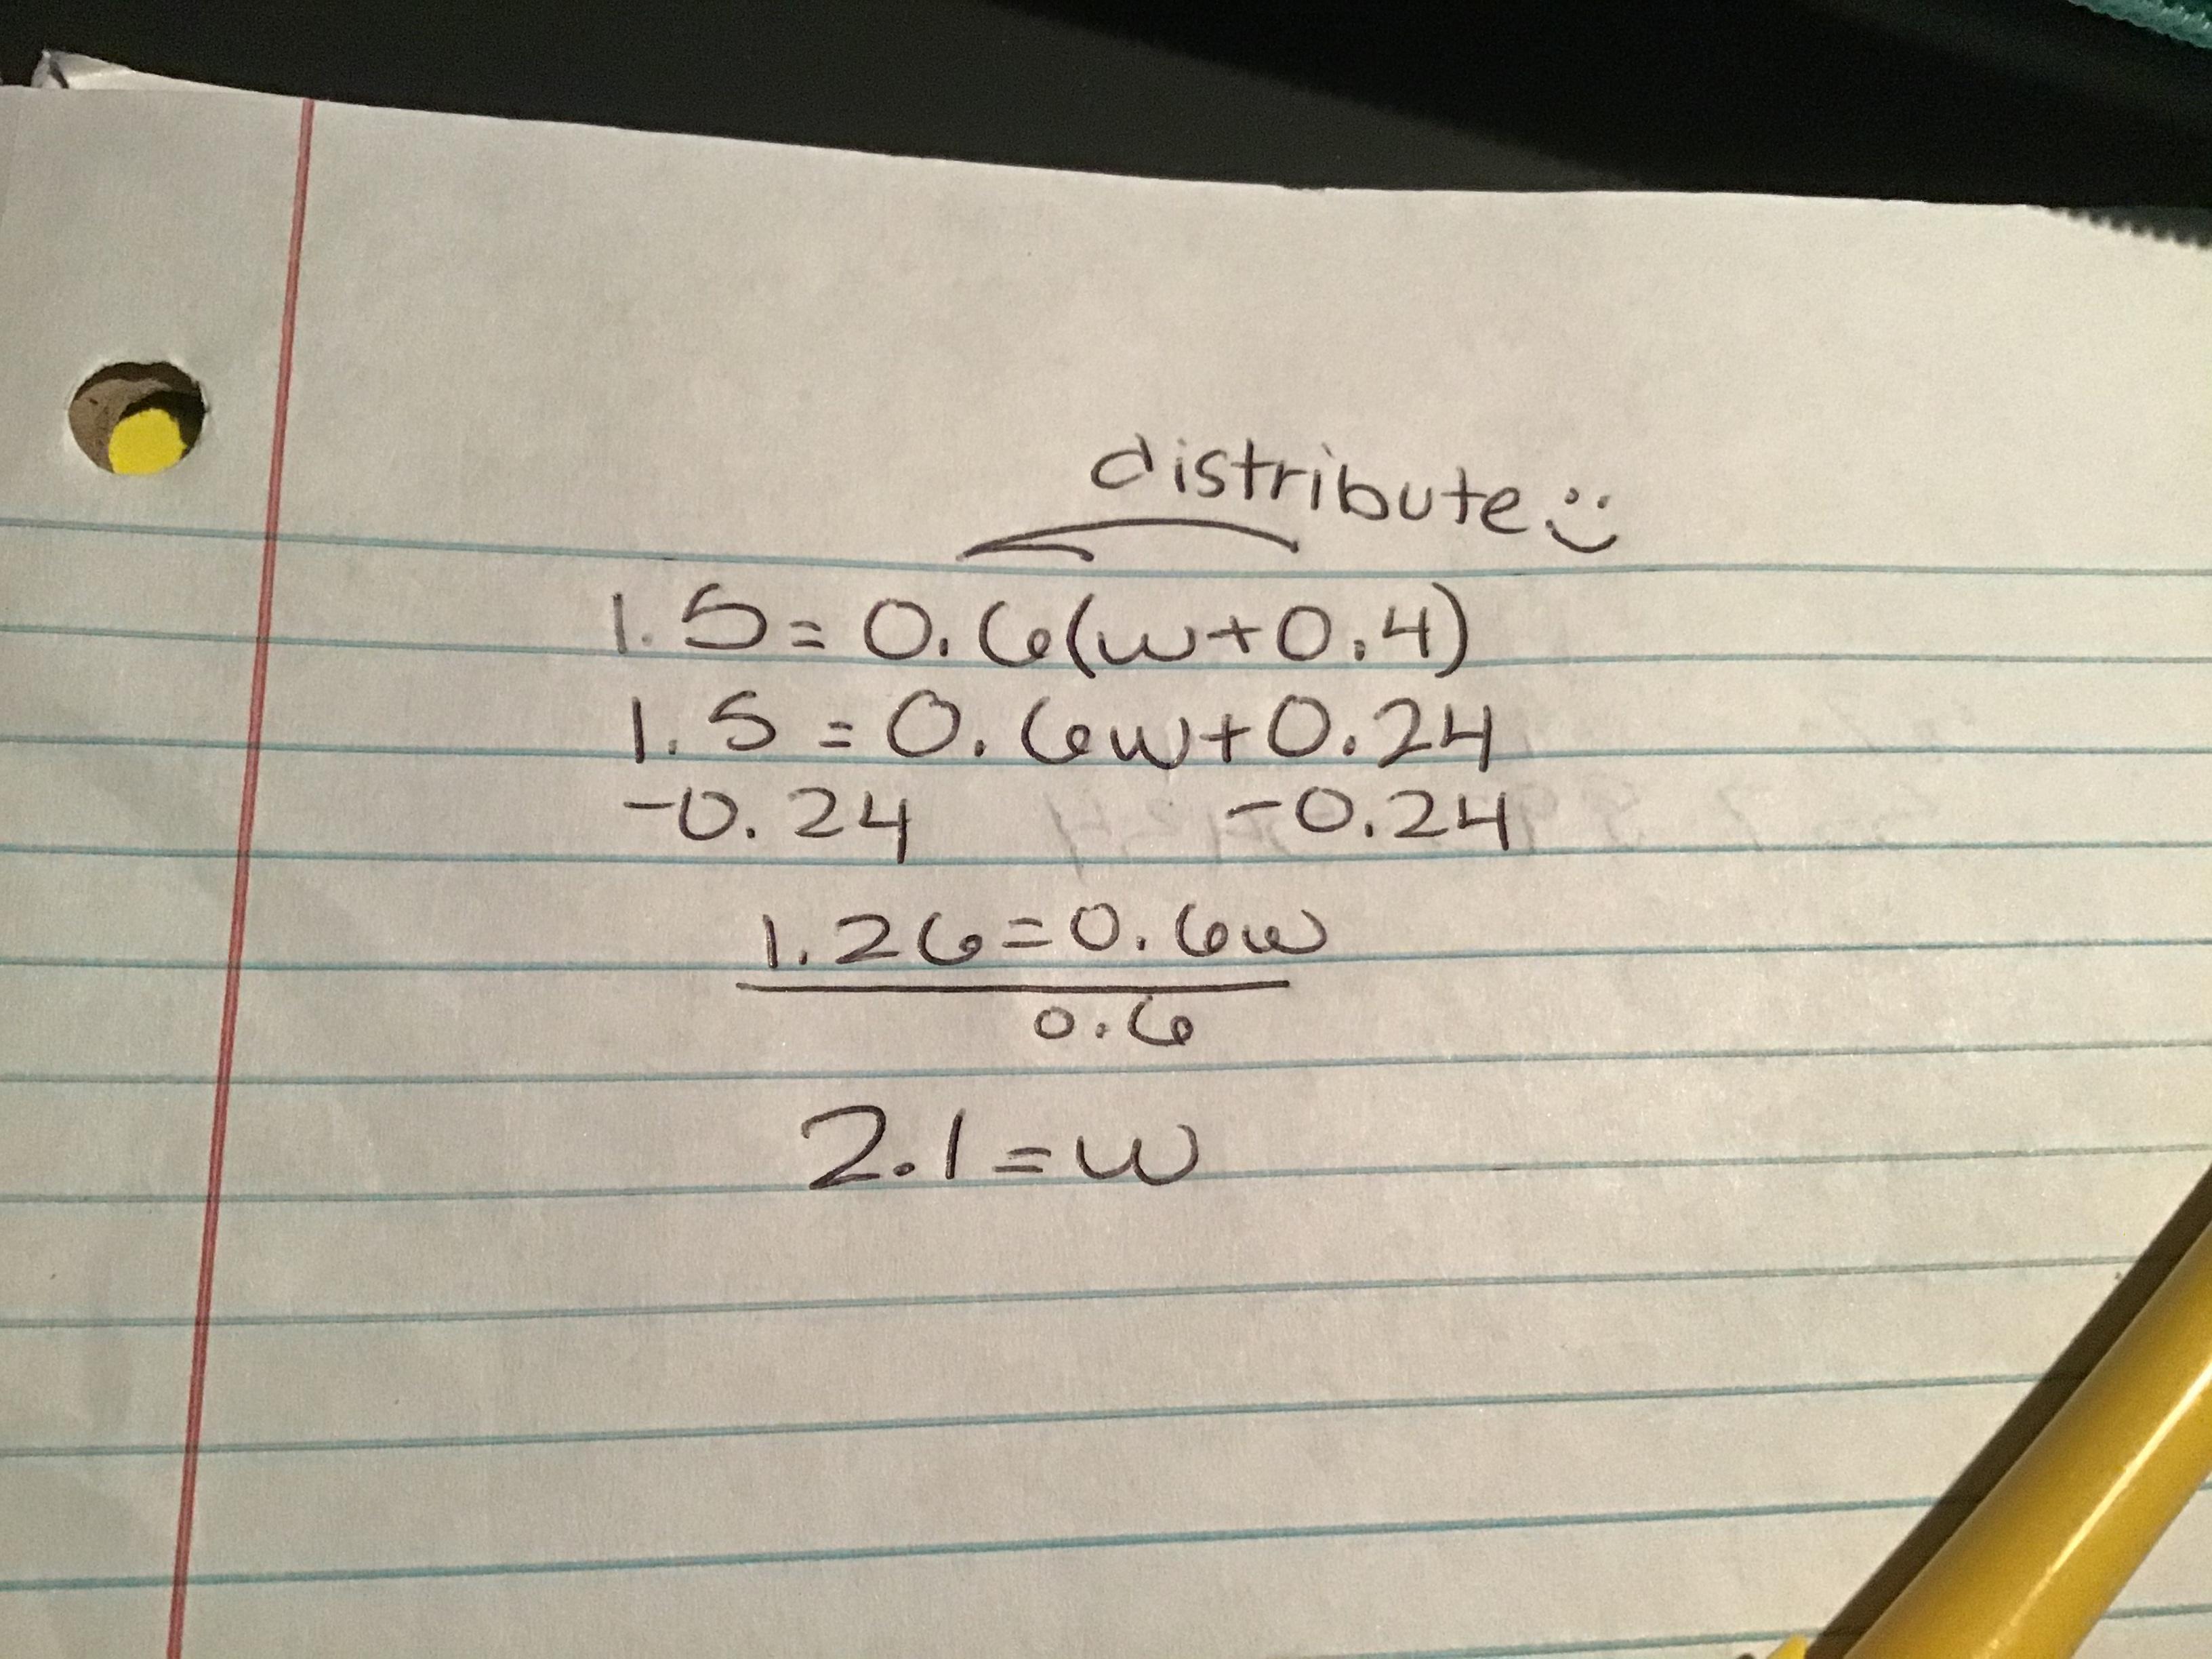 distribute :)
1.5=0.6(w+0.4)
1.5=0.6w+0.24
-0.24 -0.24
1.26=0.6w
0.6
2.1=w